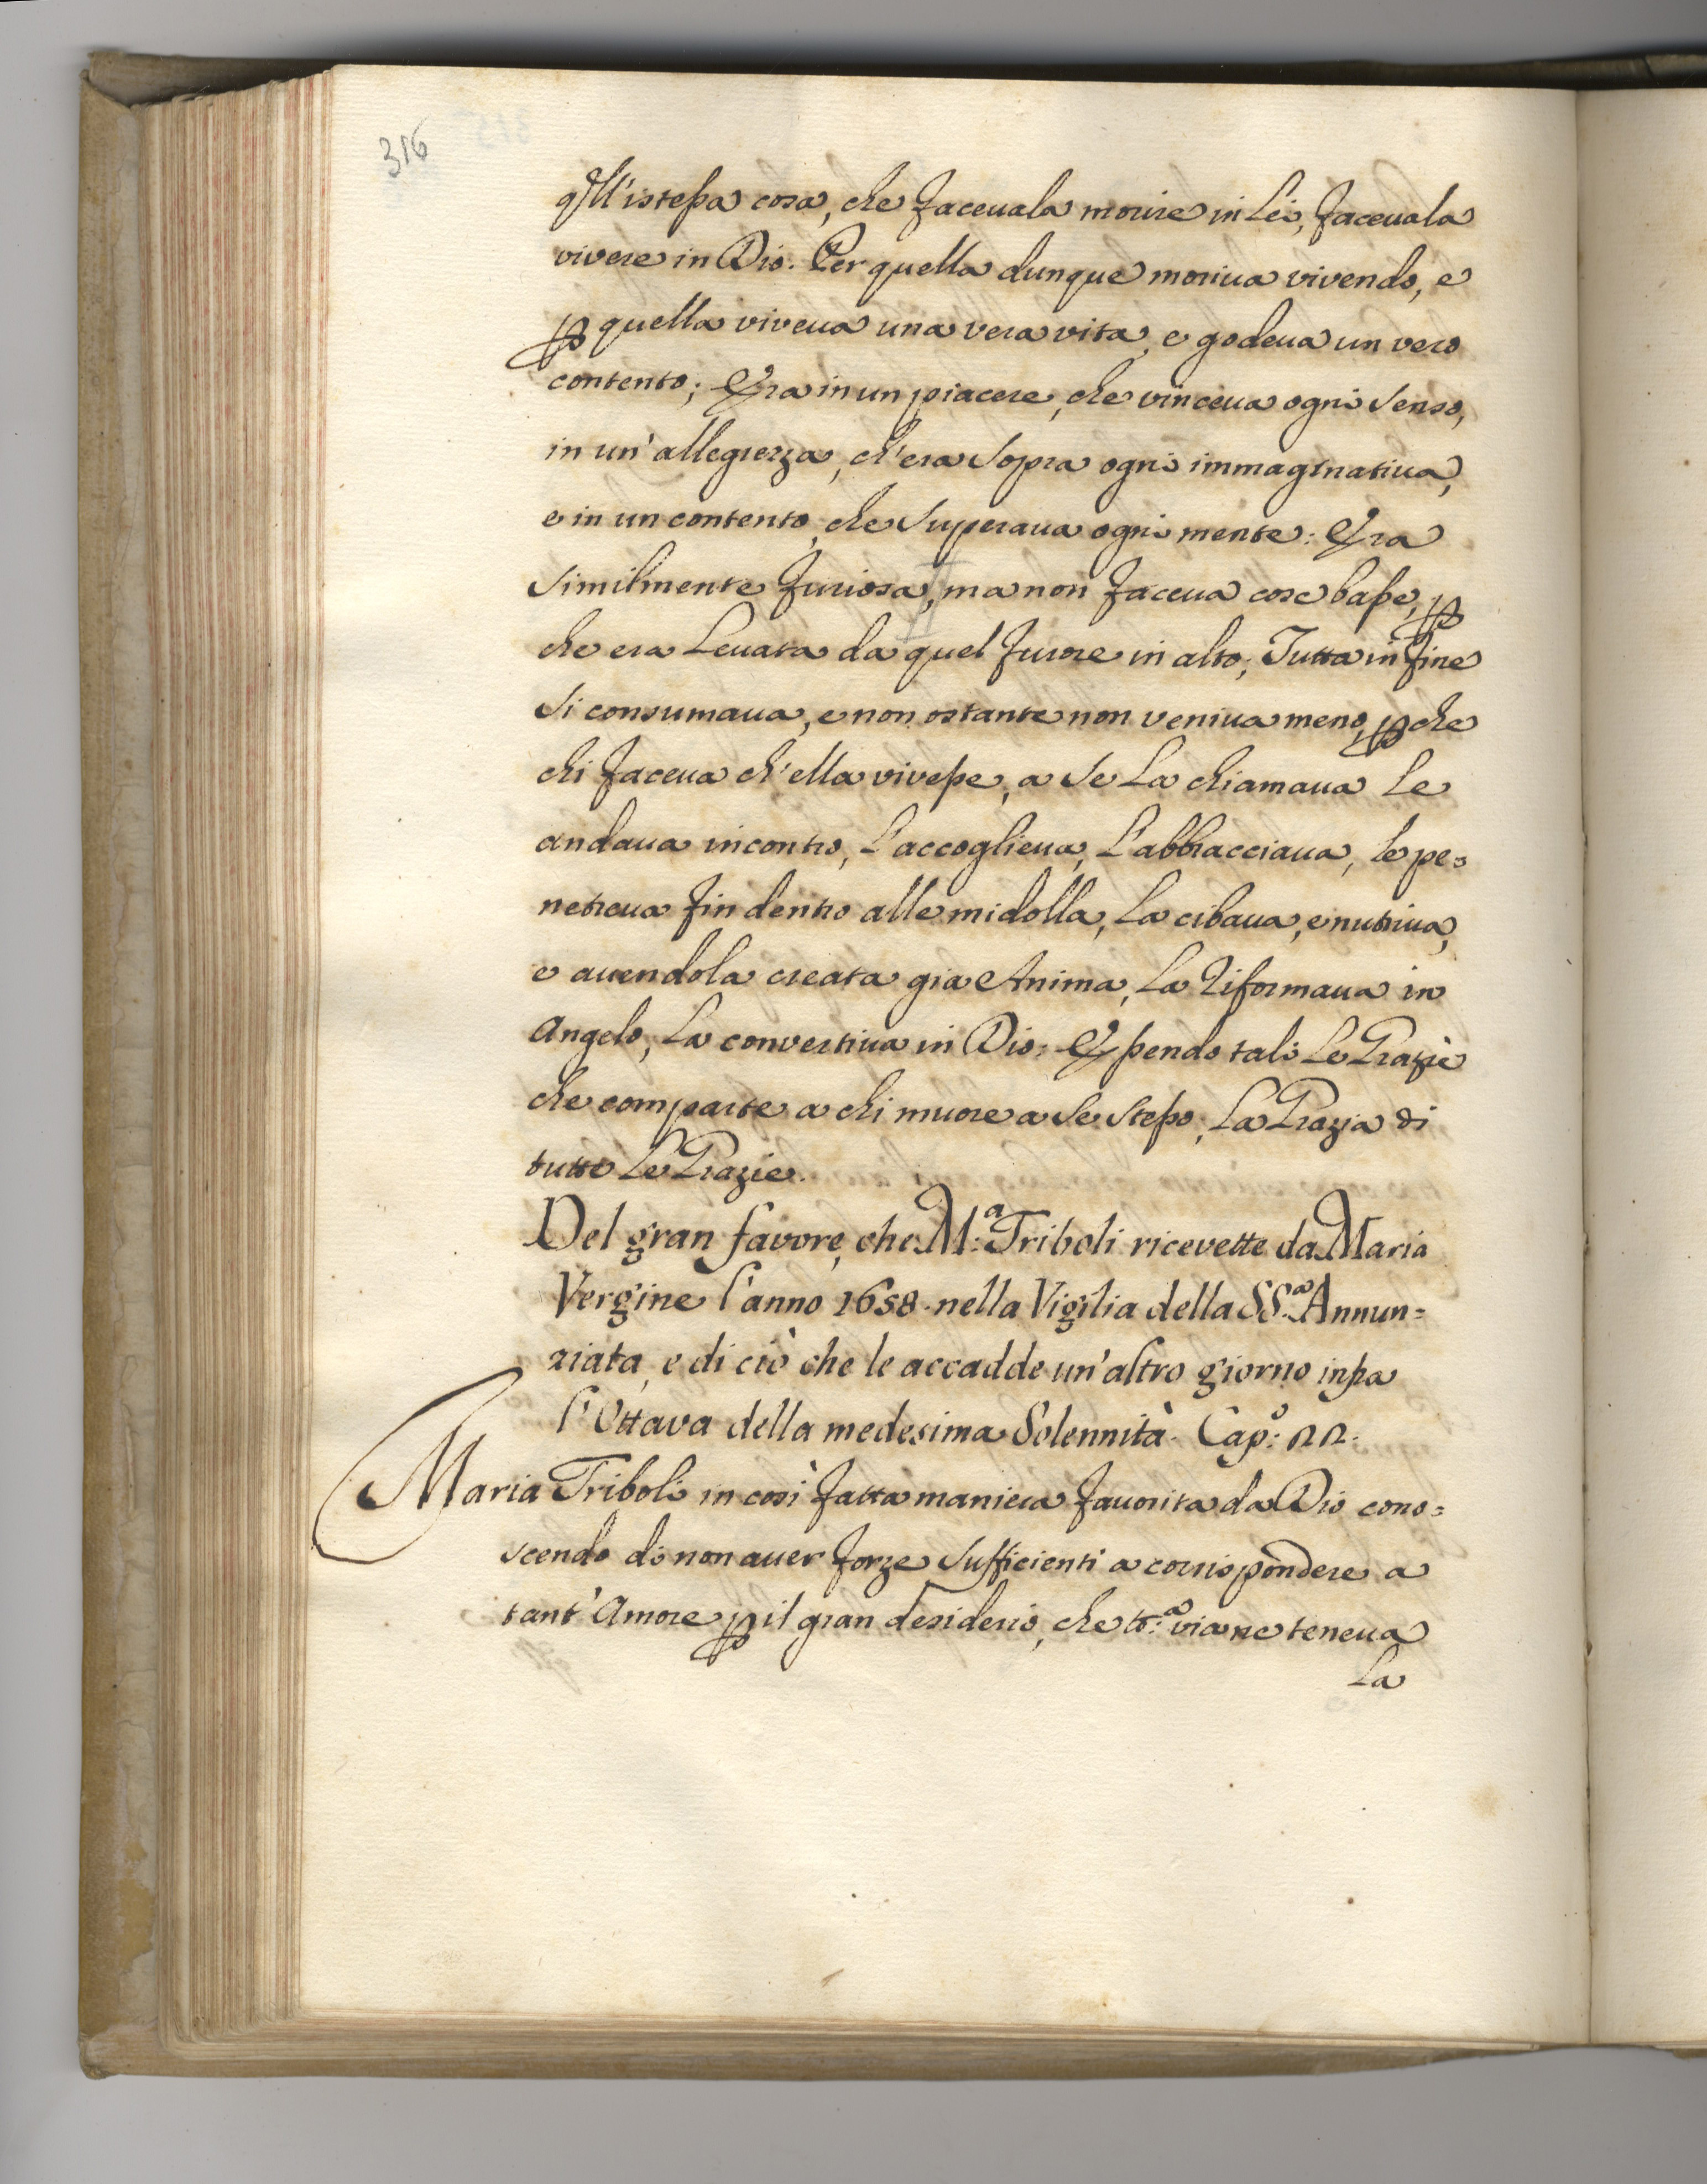 316
qll'istessa cosa, che faceuala morire in Lei, faceuala
vivere in Dio. Per quella dunque moriua vivendo, e
p quella viveua una vera vita, e godeua un vero
contento; Era in un piacere, che vinceua ogni senso,
in un' allegrezza, ch'era sopra ogni immaginatiua,
e in un contento, che superaua ogni mente: Era
similmente furiosa, ma non faceua cose basse, p
che era Leuata da quel furore in alto; Tutta in fine
si consumaua, e non ostante non veniua meno, pche
chi faceua ch'ella vivesse, a se La chiamaua le
andaua incontro, L'accoglieua, L'abbracciaua, le pe=
netreua fin dentro alle midolla, La cibaua, e nutriua,
e auendola creata gia Anima, La Riformaua in
Angelo, La convertiua in Dio: Essendo tali Le Grazie
che comparte a chi muore a se stesso, La Grazia di
tutte Le Grazie.
Del gran favore, che M:a Triboli ricevette da Maria
Vergine l'anno 1658. nella Vigilia della SS.a Annun=
ziata, e di ciò che le accadde un'altro giorno infra
l'Ottava della medesima Solennità. Cap:o 22.
Maria Triboli in così fatta maniera fauorita da Dio cono=
scendo di non auer forze sufficienti a corrispondere a
tant' Amore p il gran desiderio, che tt:a via ne teneua
La